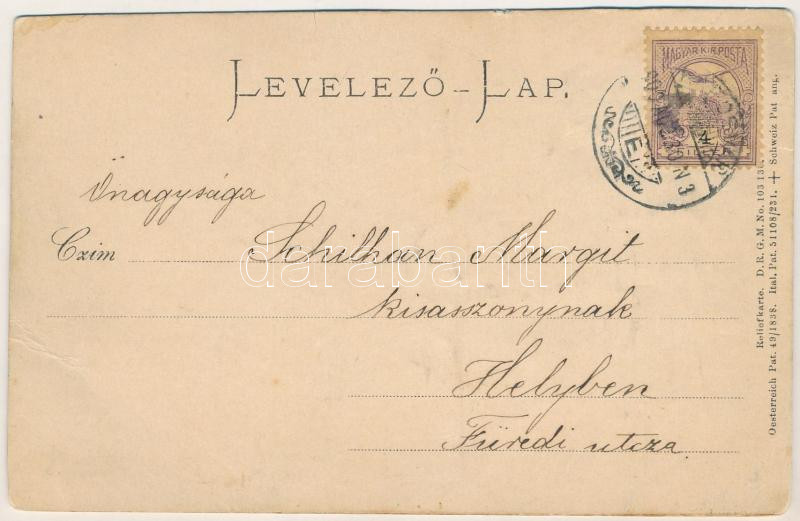 LEVELEZŐ-LAP.
MAGYAR KIR. POSTA
Önagysága
Czim Schilhan Margit
kisasszonynak
Helyben
Füredi utcza
Reliefkarte. D. R. G. M. No. 103
Oesterreich Pat. 49/1838. Ital. Pat. 51108/231. + Schweiz Pat ang.
darabanth